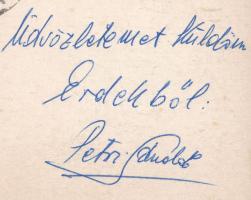 Üdvözletemet küldöm
Erdekből:
Petri